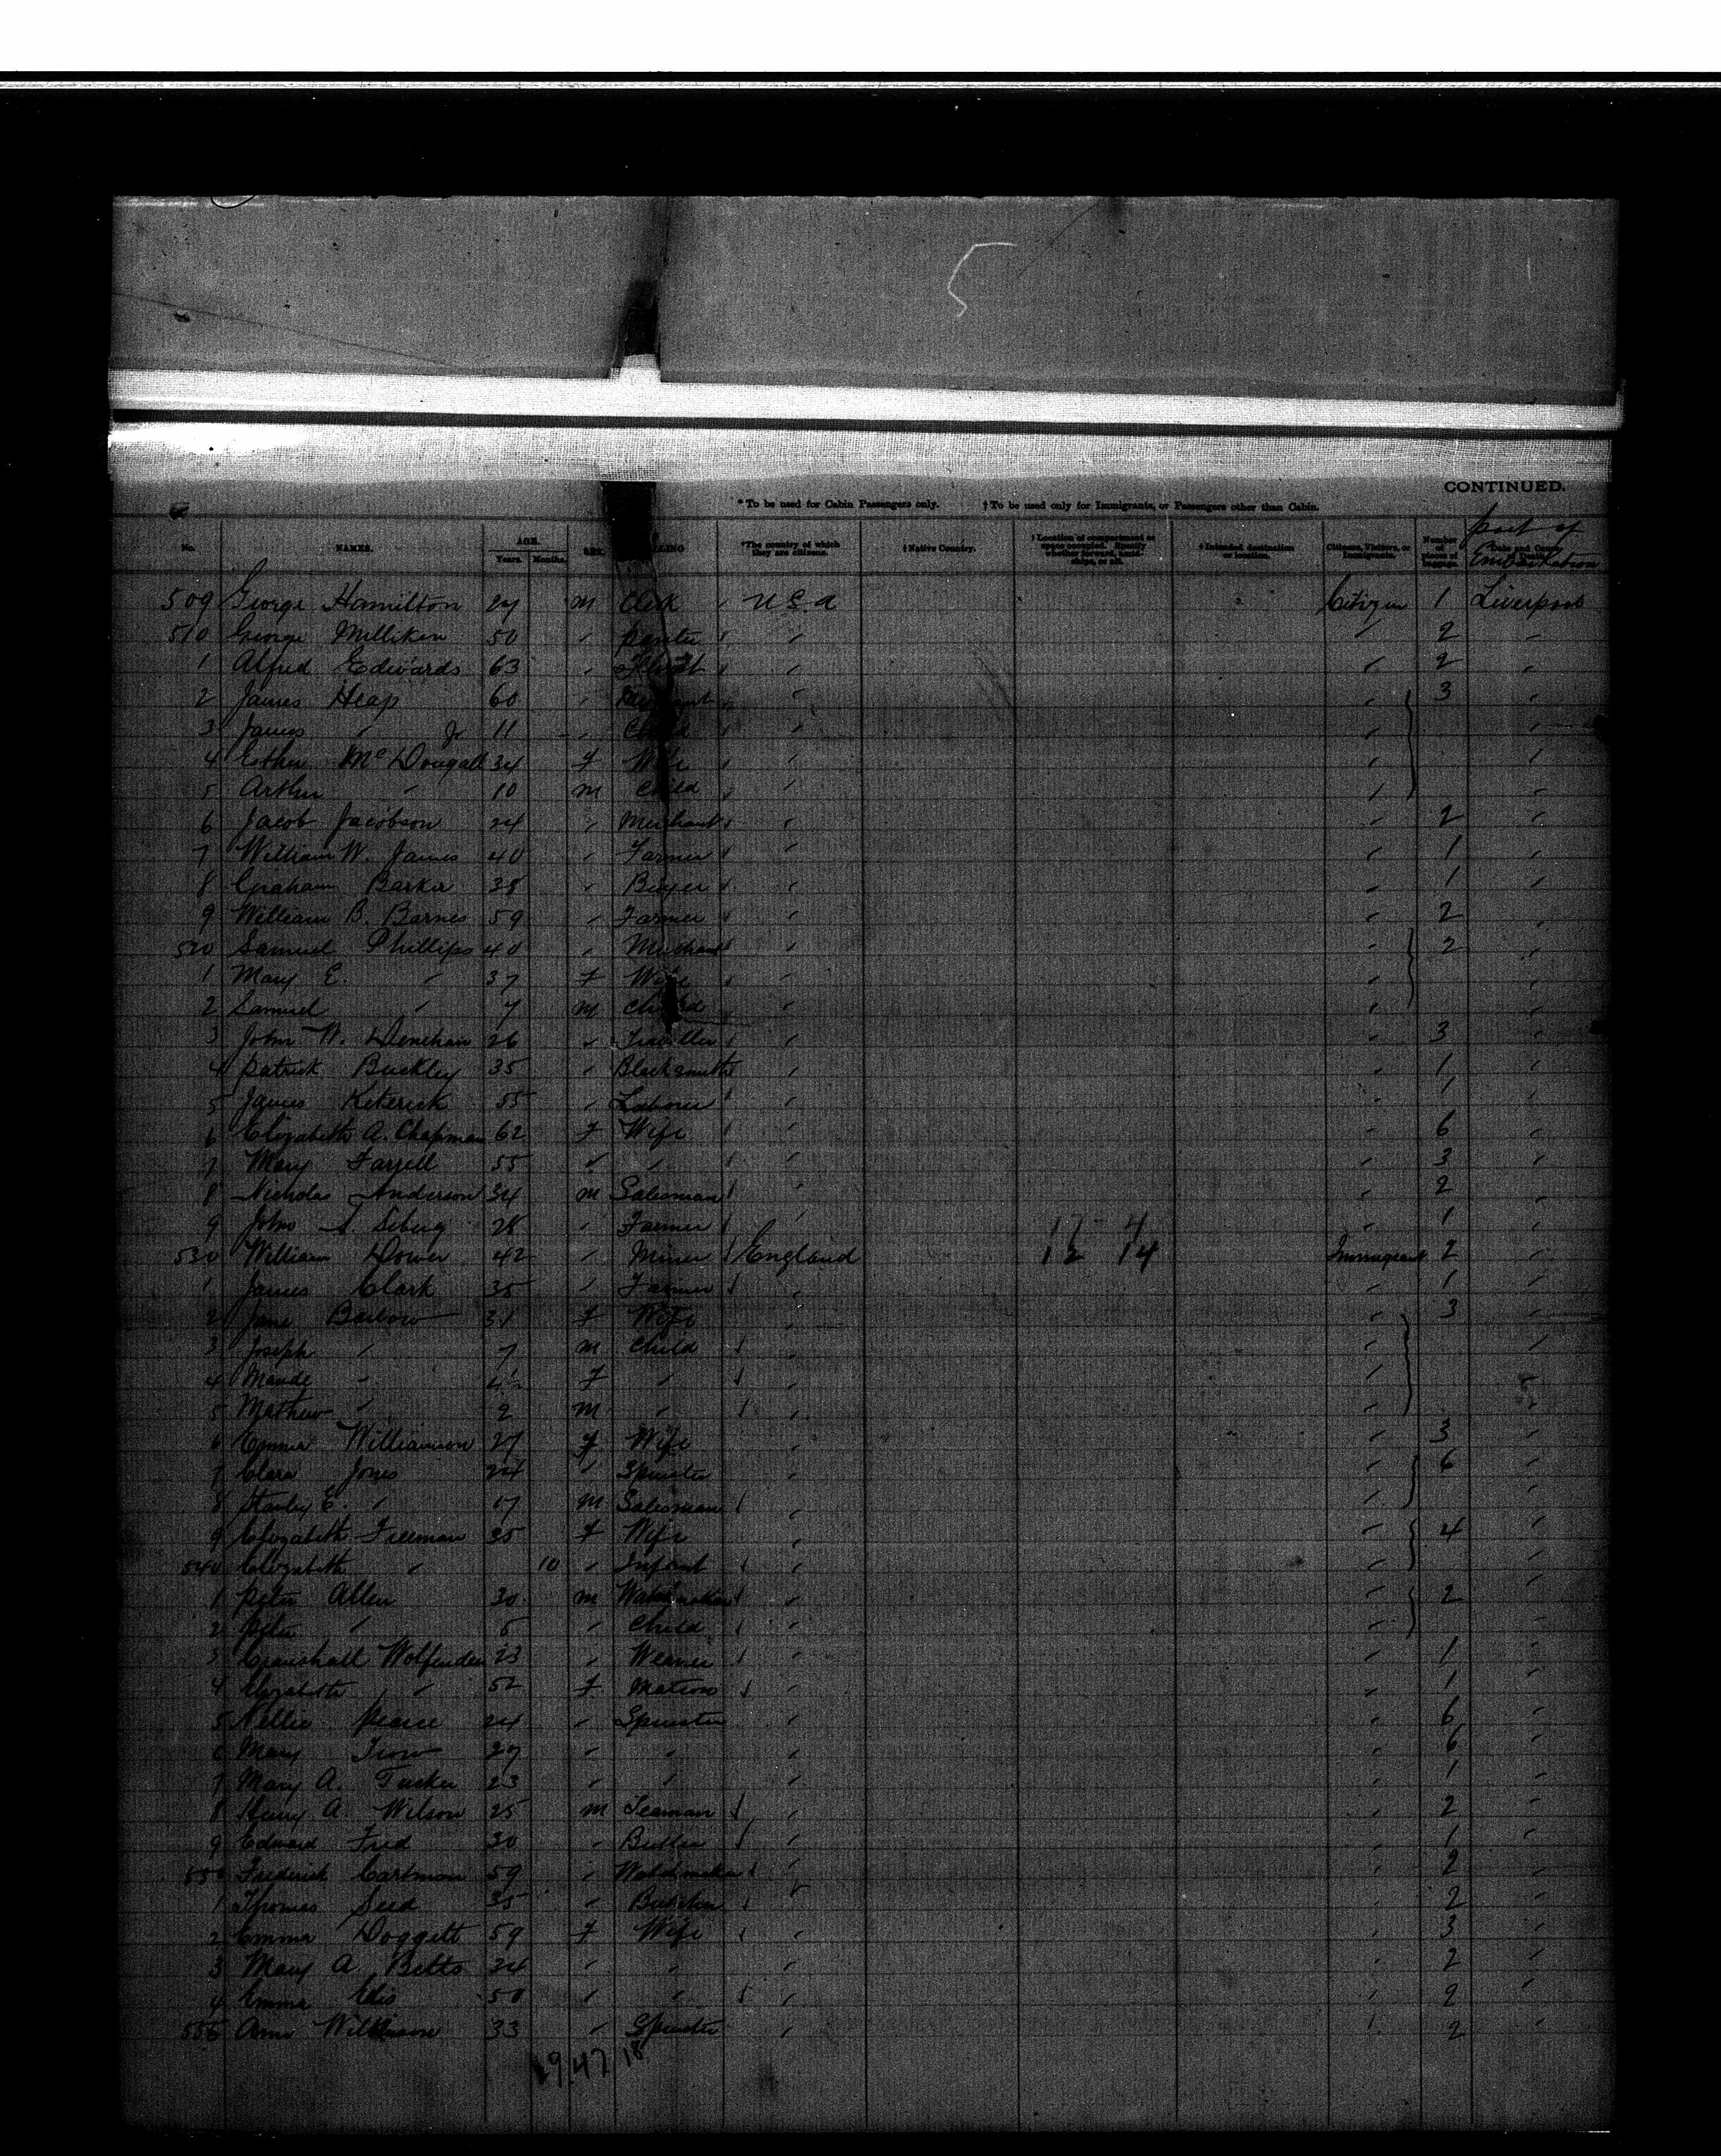 5
CONTINUED.
* To be used for Cabin Passengers only. † To be used only for Immigrants, or Passengers other than Cabin.
Port of Embarkation
No. NAMES. AGE. Years. Months. SEX. CALLING *The country of which they are citizens. † Native Country. † Intended destination or location. Citizens, Visitors, or Immigrants. Number of pieces of baggage.
509 George Hamilton 27 M Clerk U S A Citizen 1 Liverpool
510 George Milliken 50 " " " 2 "
1 Alfred Edwards 63 " " " 2 "
2 James Heap 60 " " " 3 "
3 James " Jr 11 " Child " " "
4 Esther McDougall 34 F Wife " " "
5 Arthur " 10 M Child " " "
6 Jacob Jacobson 24 " Merchant " " 2 "
7 William W. James 40 " Farmer " " 1 "
8 Graham Barker 38 " Buyer " " 1 "
9 William B. Barnes 59 " Farmer " " 2 "
520 Samuel Phillips 40 " Merchant " " 2 "
1 Mary E. " 37 F Wife " " "
2 Samuel " 7 M Child " " "
3 John W. Denehan 26 " Traveller " " 3 "
4 Patrick Buckley 35 " Blacksmith " " 1 "
5 James Keterick 55 " Laborer " " 1 "
6 Elizabeth A. Chapman 62 F Wife " " 6 "
7 Mary Farrell 55 " " " " 3 "
8 Nicholas Anderson 34 M Salesman " " 2 "
9 John S. Seberg 28 " Farmer " " 1 "
530 William Dower 42 " Miner England 12 14 Immigrant 2 "
1 James Clark 35 " Farmer " " 1 "
2 Jane Barlow 31 F Wife " " 3 "
3 Joseph " 7 M Child " " "
4 Maude " 4½ F " " " "
5 Mathew " 2 M " " " "
6 Emma Williamson 27 F Wife " " 3 "
7 Clara Jones 24 " Spinster " " 6 "
8 Stanley E. " 17 M Salesman " " "
9 Elizabeth Fillman 35 F Wife " " 4 "
540 Elizabeth " 10 " Infant " " "
1 Peter Allen 30 M Watchmaker " " 2 "
2 Peter " 5 " Child " " "
3 Crawshall Wolfenden 23 " Weaver " " 1 "
4 Elizabeth " 52 F Matron " " 1 "
5 Nellie Pearse 24 " Spinster " " 6 "
6 Mary Trow 27 " " " " 6 "
7 Mary A. Tucker 23 " " " " 1 "
8 Henry A. Wilson 25 M Seaman " " 2 "
9 Edward Fred 30 " Butler " " 1 "
550 Frederick Cartman 59 " " " 2 "
1 Thomas Seed 35 " Butcher " " 2 "
2 Emma Doggett 59 F Wife " " 3 "
3 Mary A. Betts 24 " " " " 2 "
4 Emma Elis 50 " " " " 2 "
555 Ann Wilkinson 33 " Spinster " " 2 "
29.47 18